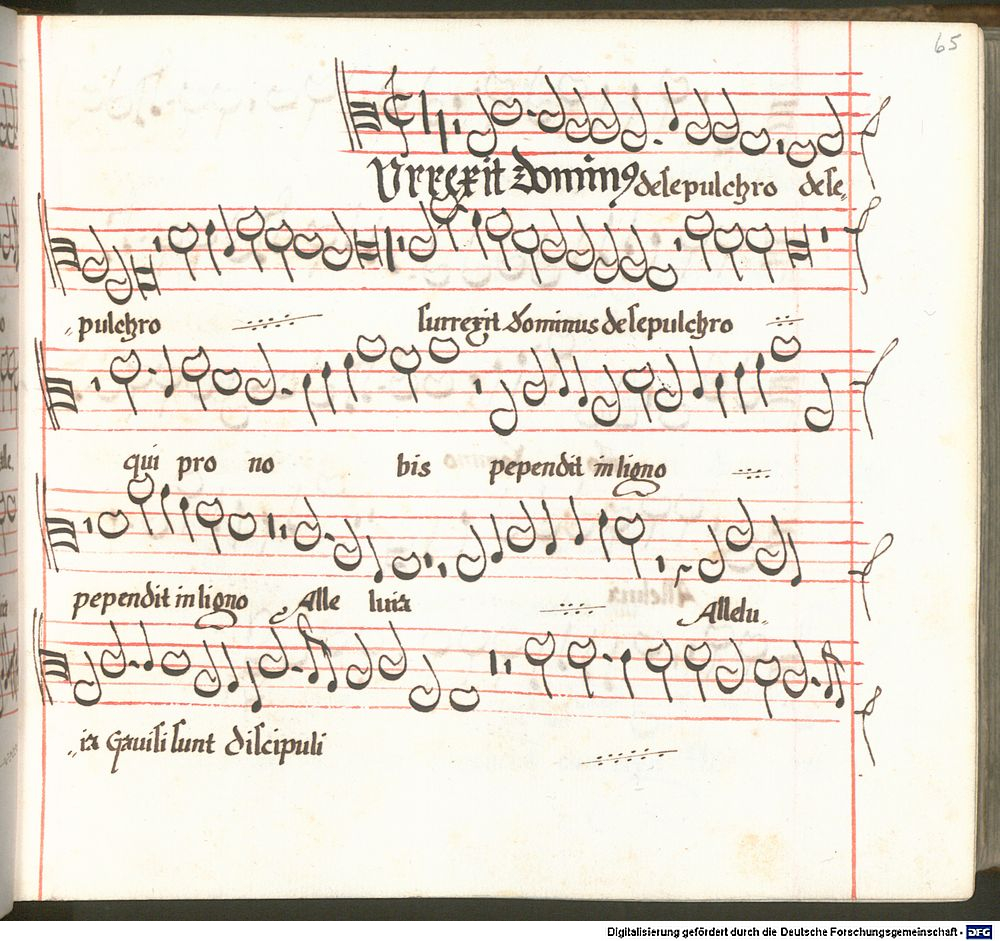 65
Vrrexit Domin⁹ de sepulchro de se-
-pulchro surrexit Dominus de sepulchro
qui pro no bis pependit in ligno
pependit in ligno Alle luia Allelu-
-ia Gauisi sunt discipuli
Digitalisierung gefördert durch die Deutsche Forschungsgemeinschaft - DFG